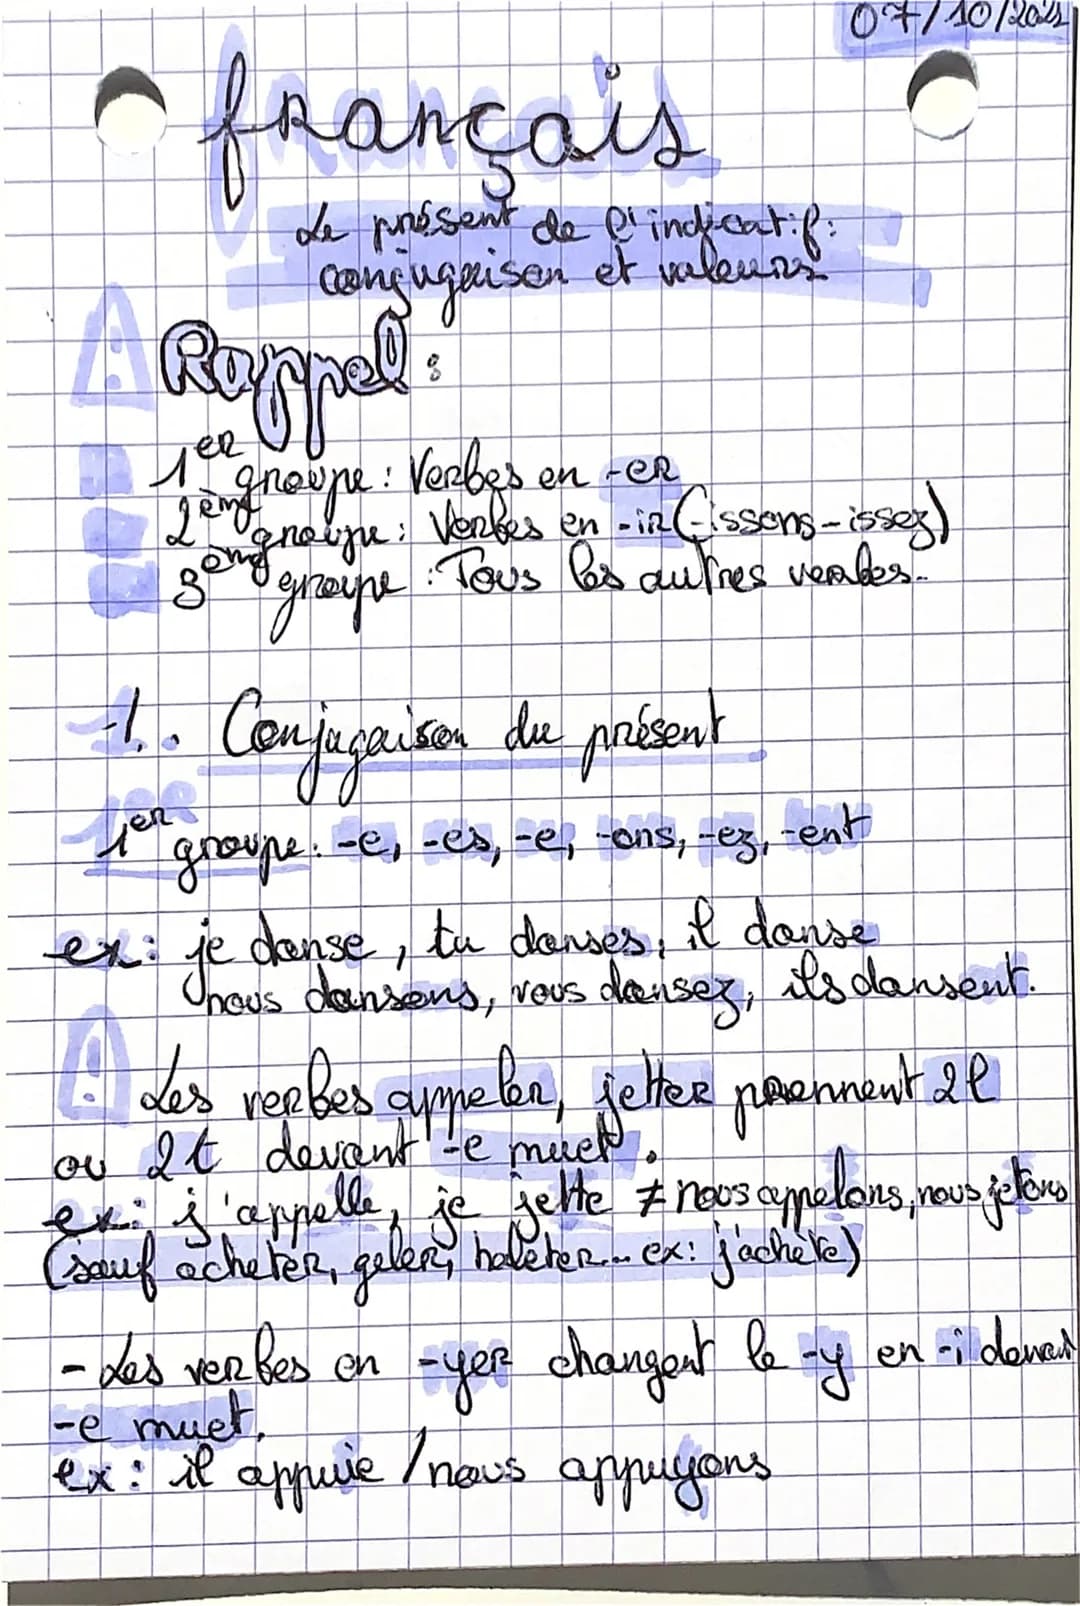 07/10/2021
français
Le présent de l'indicatif:
conjugaison et valeurs
Rappel :
1er groupe : Verbes en -er
2ème groupe : Verbes en -ir (-issons -issez)
3ème groupe : Tous les autres verbes.
1. Conjugaison du présent
1er groupe : -e, -es, -e, -ons, -ez, -ent
ex : je danse, tu danses, il danse
nous dansons, vous dansez, ils dansent.
Les verbes appeler, jetter prennent 2l
ou 2t devant -e muet.
ex : j'appelle, je jette ≠ nous appelons, nous jetons
(sauf acheter, geler, haleter... ex : j'achète)
- Les verbes en -yer changent le -y en -i devant
-e muet.
ex : il appuie / nous appuyons